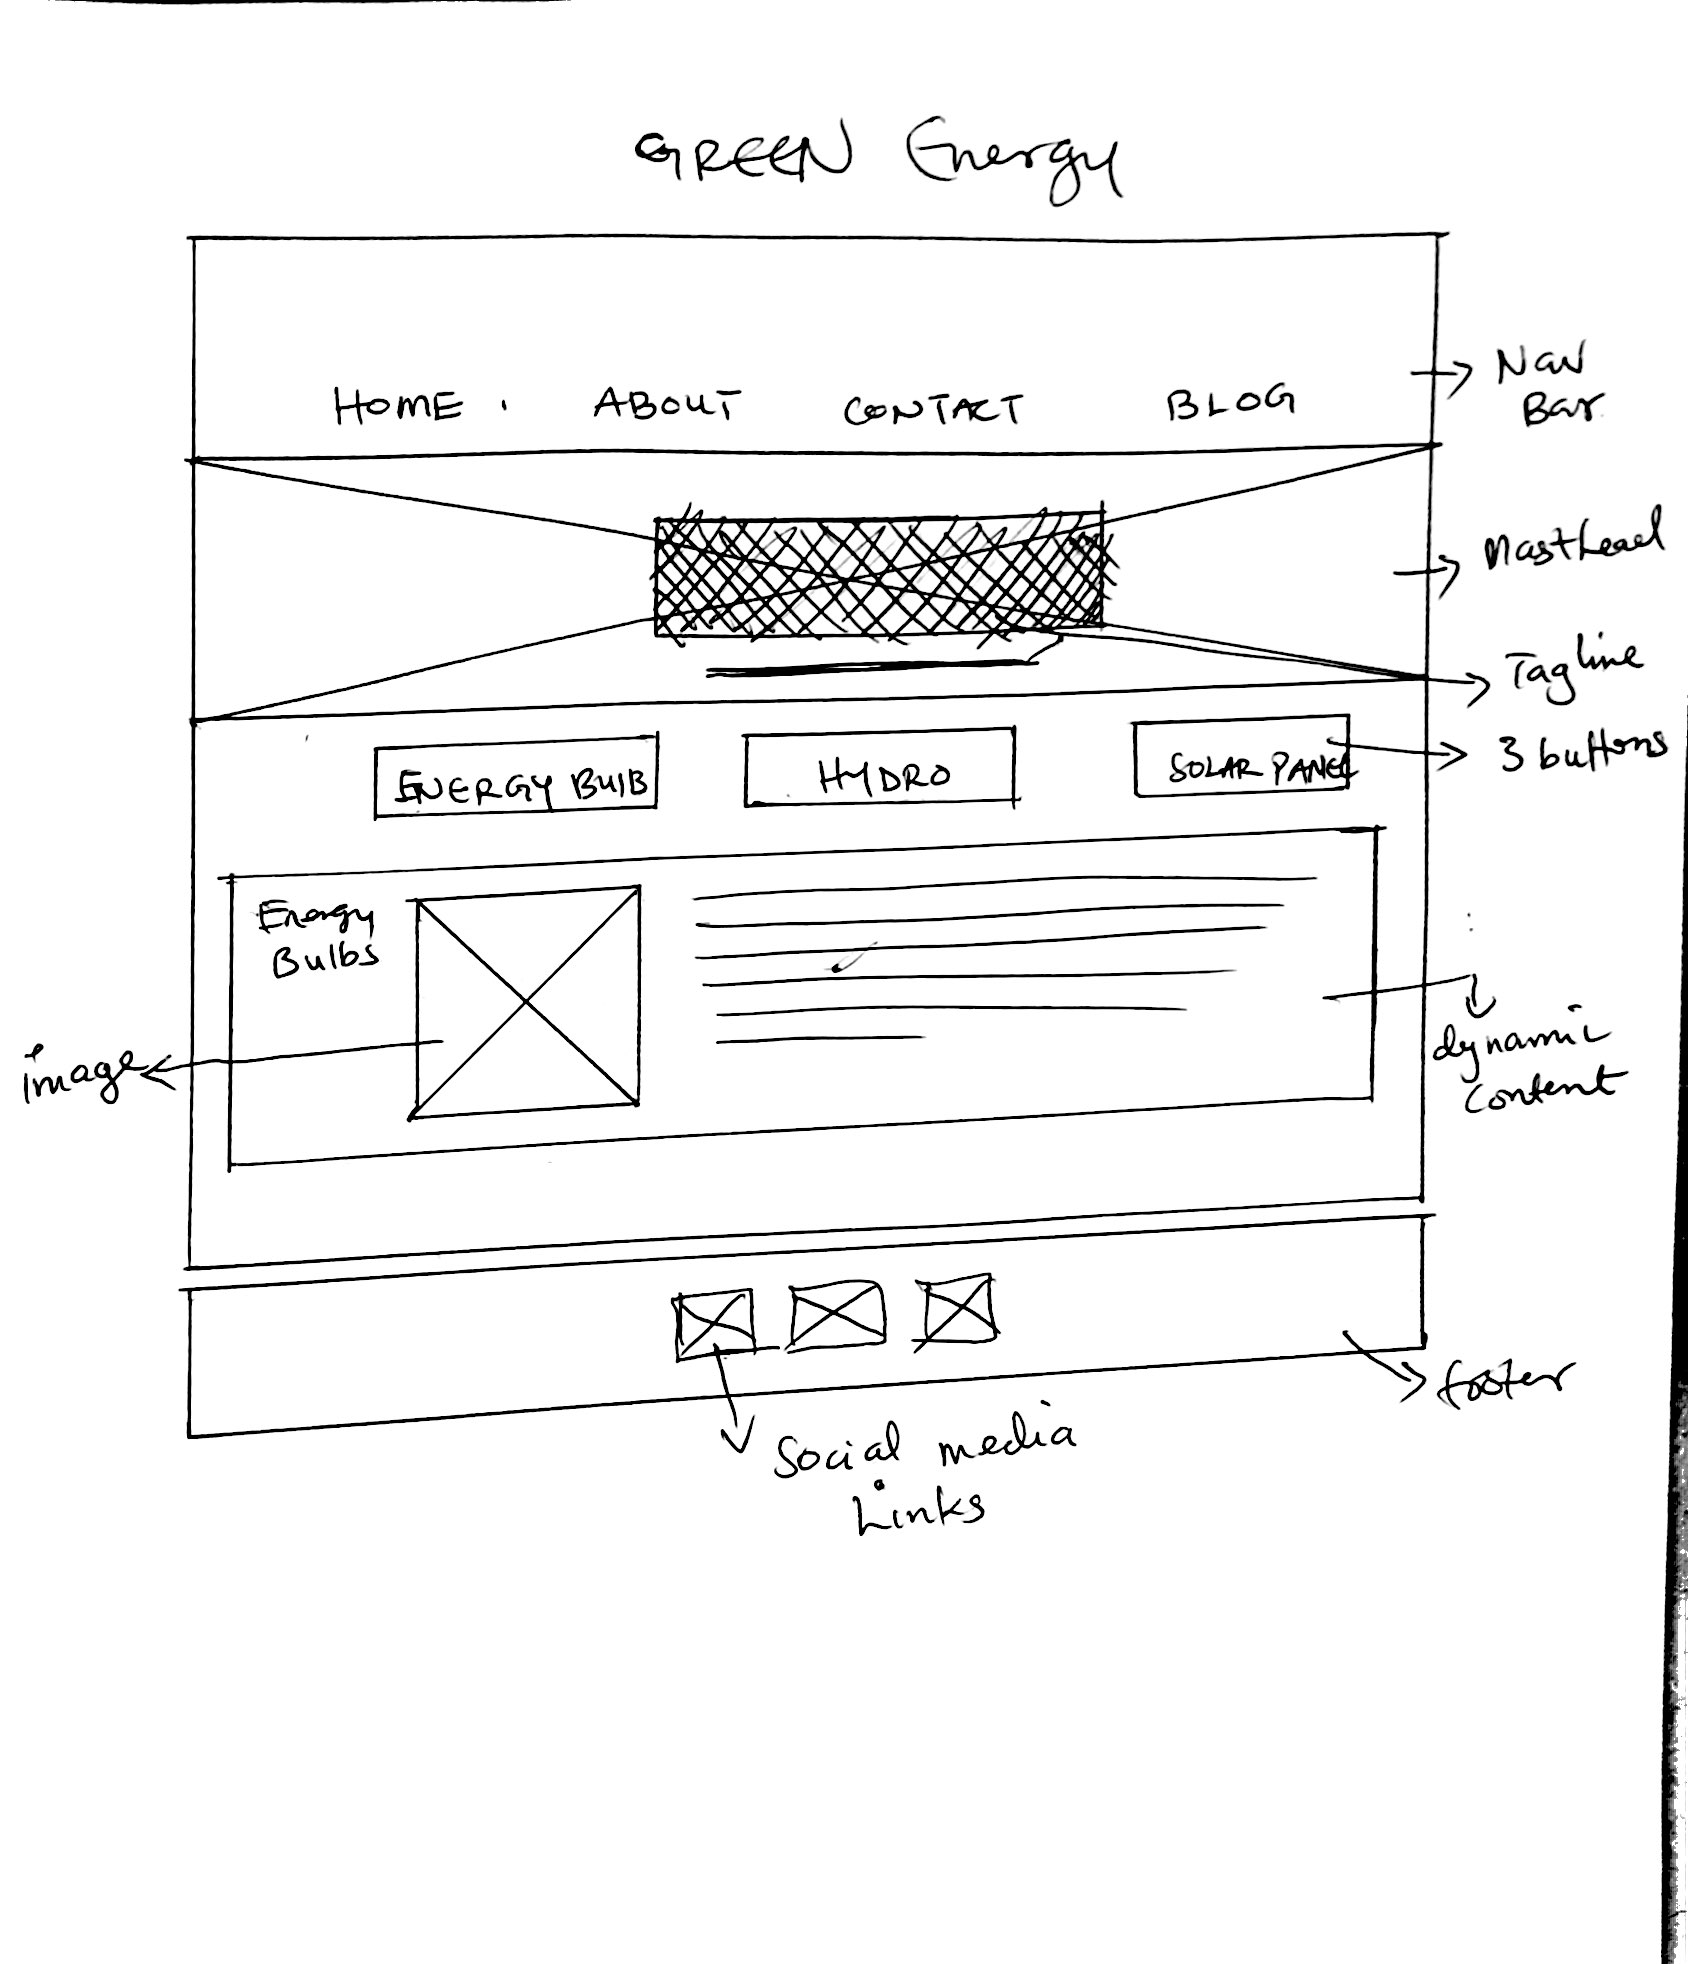 GREEN Energy
HOME . ABOUT CONTACT BLOG
Nav
Bar
Masthead
Tagline
3 buttons
ENERGY BUlB
HYDRO
SOLAR PANEL
Energy
Bulbs
image
dynamic
content
footer
Social media
Links